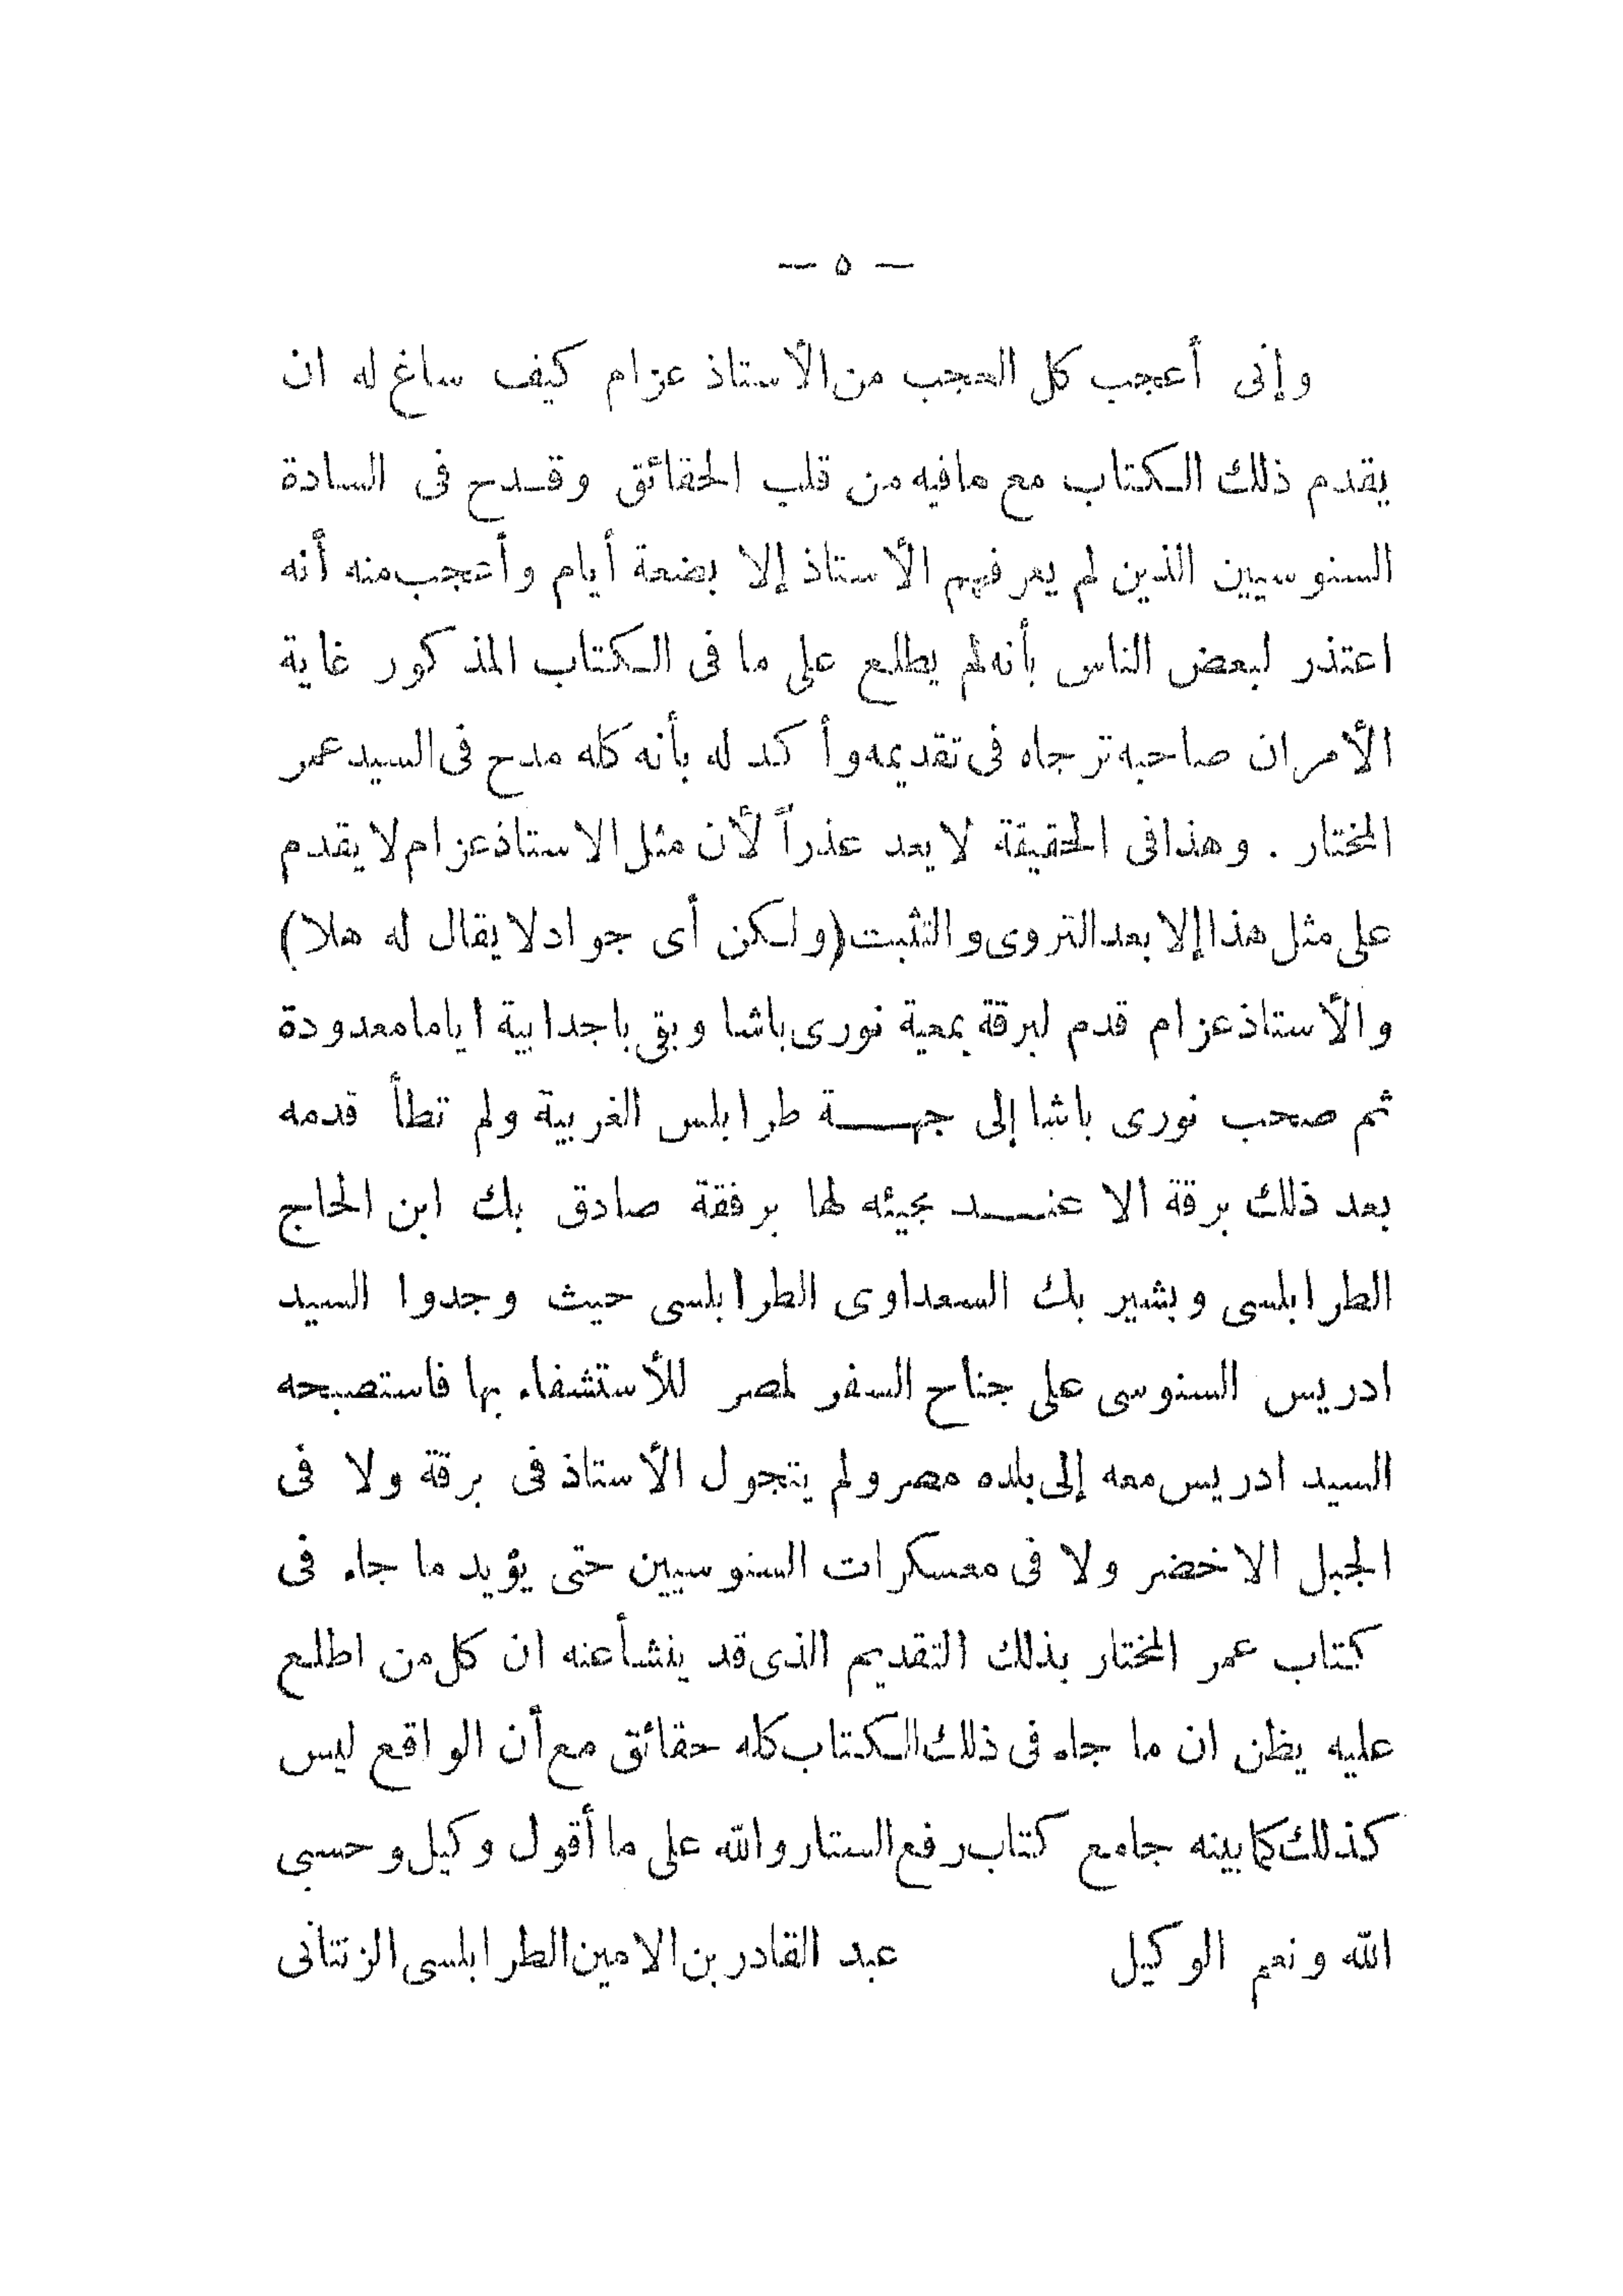 — ٥ —
وإنى أعجب كل العجب من الأستاذ عزام كيف ساغ له ان
يقدم ذلك الكتاب مع مافيه من قلب الحقائق وقدح فى السادة
السنوسيين الذين لم يعرفهم الأستاذ إلا بضعة أيام وأعجب منه أنه
اعتذر لبعض الناس بأنه لم يطلع على ما فى الكتاب المذكور غاية
الأمر ان صاحبه ترجاه فى تقديمه وأكد له بأنه كله مدح فى السيد عمر
المختار . وهذا فى الحقيقة لا يعد عذراً لأن مثل الاستاذ عزام لا يقدم
على مثل هذا إلا بعد التروى والتثبت (ولكن أى جواد لا يقال له هلا)
والأستاذ عزام قدم لبرقة بمعية نورى باشا وبقى باجدابية اياما معدودة
ثم صحب نورى باشا إلى جهة طرابلس الغربية ولم تطأ قدمه
بعد ذلك برقة الا عند مجيئه لها برفقة صادق بك ابن الحاج
الطرابلسى وبشير بك السعداوى الطرابلسى حيث وجدوا السيد
ادريس السنوسى على جناح السفر لمصر للأستشفاء بها فاستصبحه
السيد ادريس معه إلى بلده مصر ولم يتجول الأستاذ فى برقة ولا فى
الجبل الاخضر ولا فى معسكرات السنوسيين حتى يؤيد ما جاء فى
كتاب عمر المختار بذلك التقديم الذى قد ينشأ عنه ان كل من اطلع
عليه يظن ان ما جاء فى ذلك الكتاب كله حقائق مع أن الواقع ليس
كذلك كما بينه جامع كتاب رفع الستار والله على ما أقول وكيل وحسبى
الله ونعم الوكيل عبد القادر بن الامين الطرابلسى الزنتانى